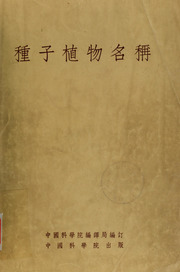 種子植物名稱
中國科學院編譯局編訂
中國科學院出版